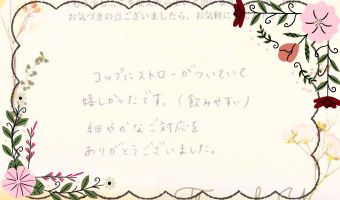 お気づきの点ございましたら、お気軽に
コップにストローがついていて
嬉しかったです。(飲みやすい)
細やかなご対応を
ありがとうございました。